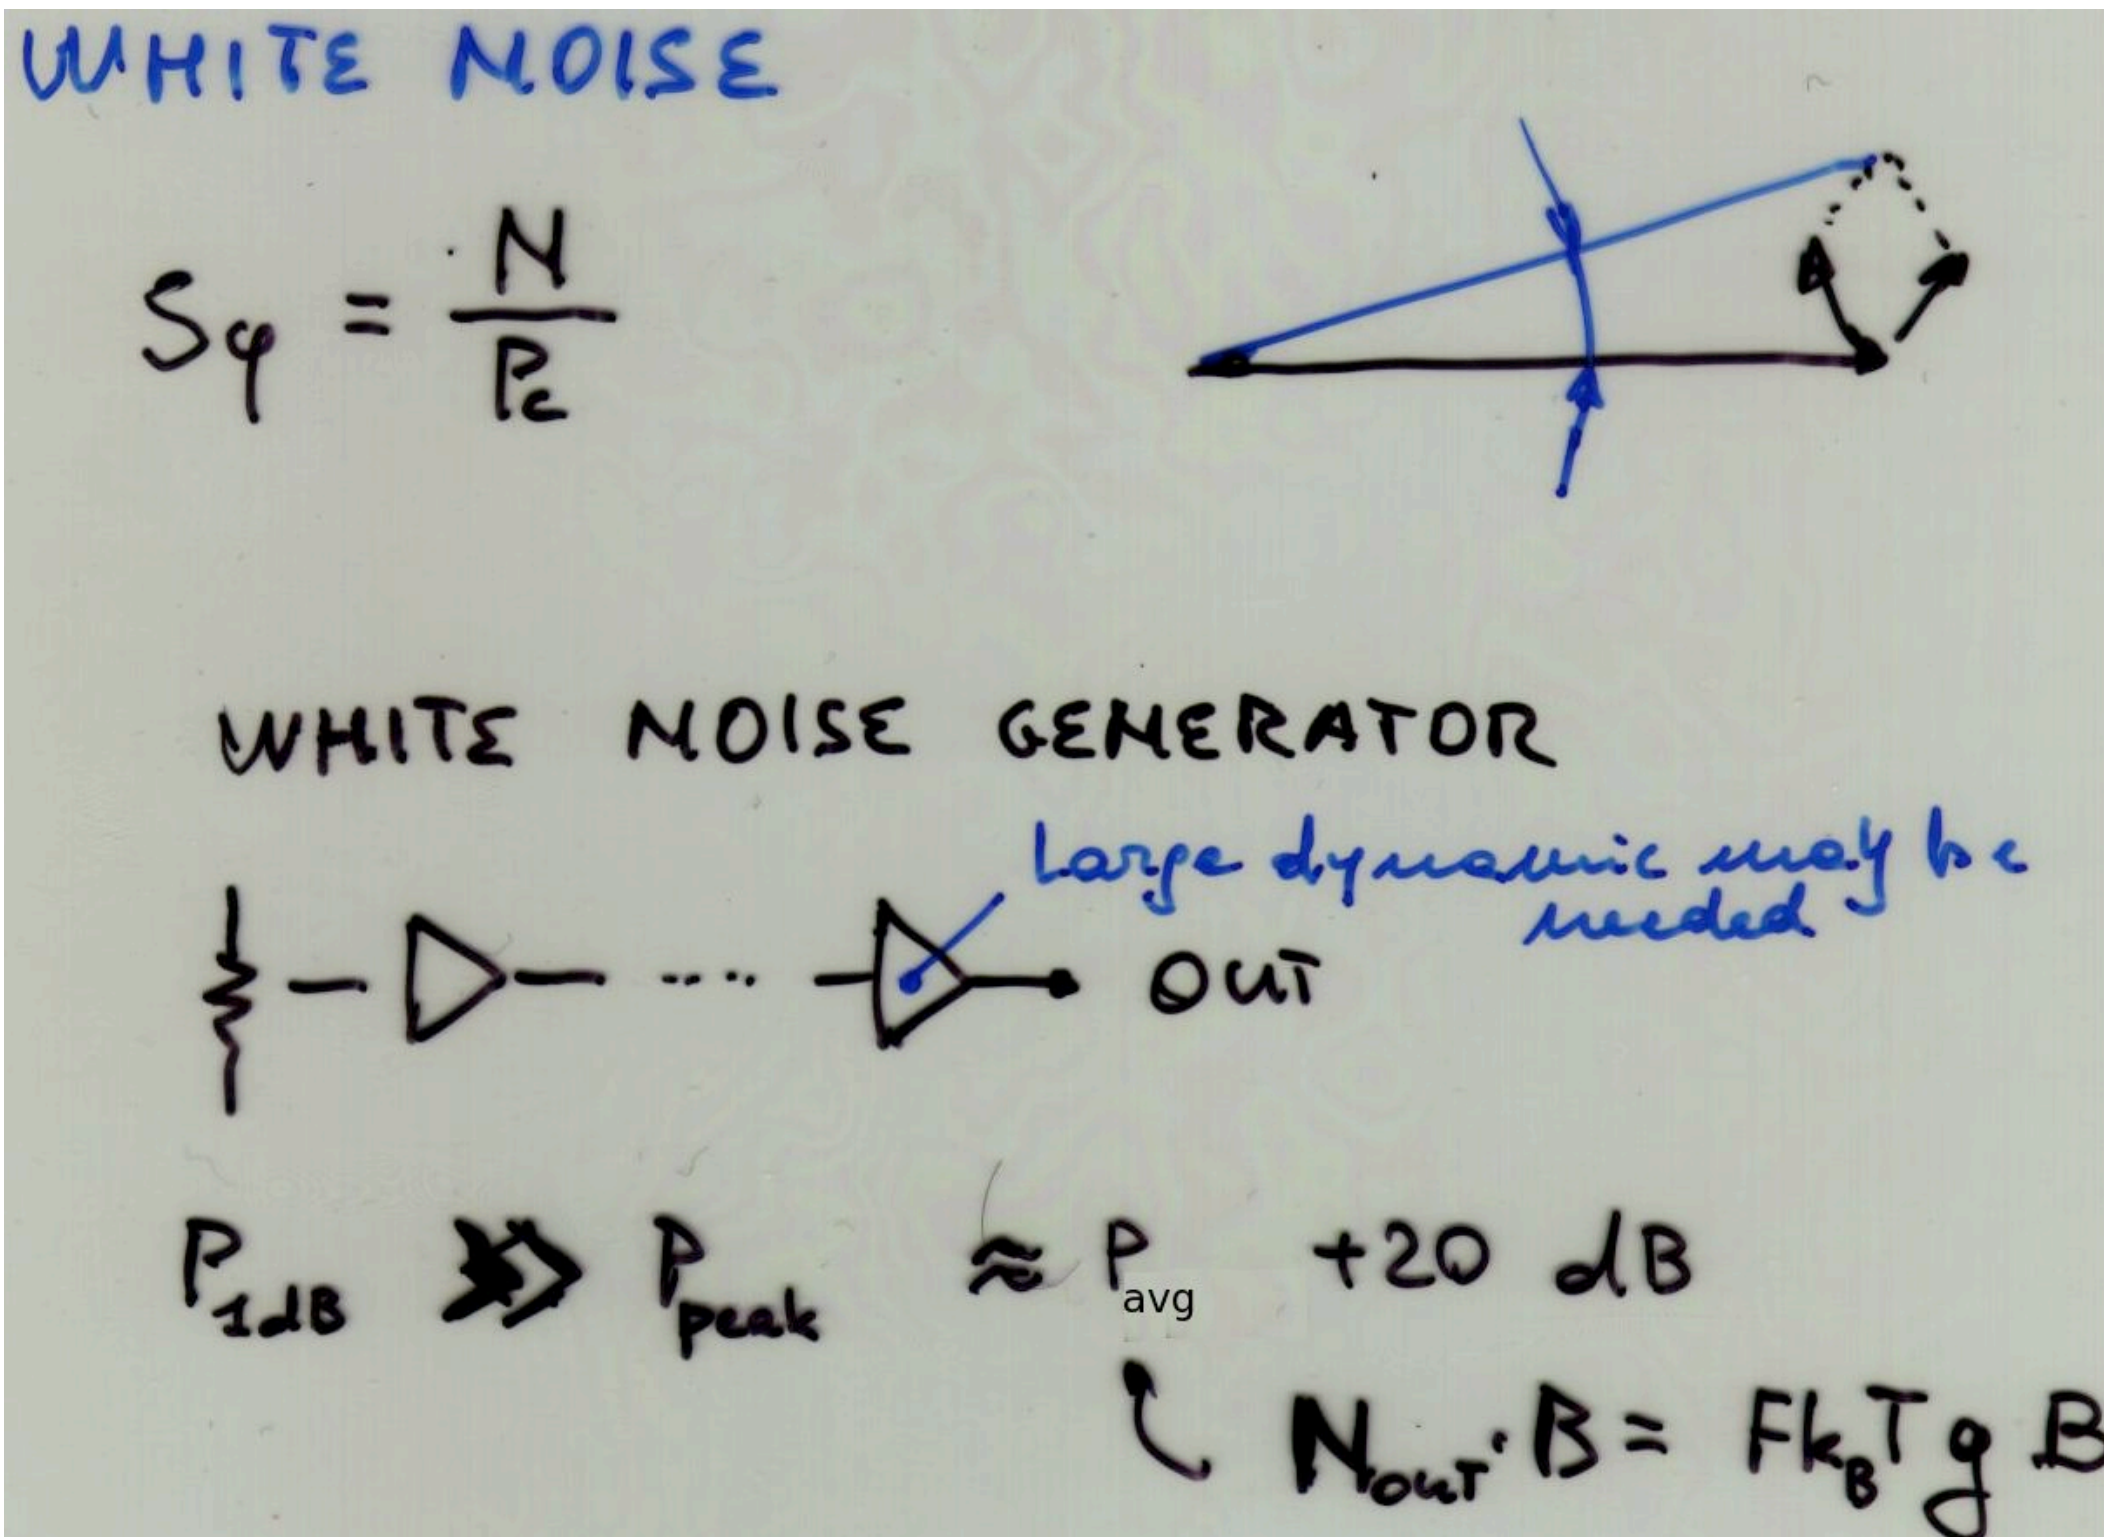 WHITE NOISE
Sφ = N / Pc
WHITE NOISE GENERATOR
Large dynamic may be
needed
OUT
P1dB >> Ppeak ≈ Pavg +20 dB
NOUT · B = FkBT g B